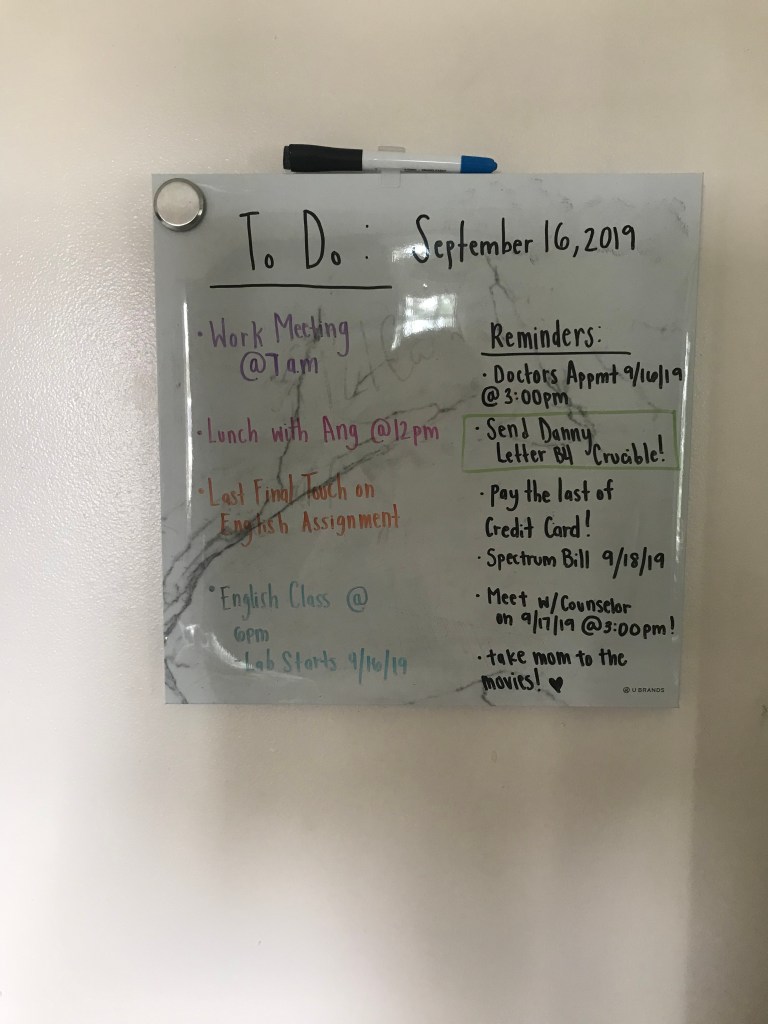 To Do: September 16, 2019
• Work Meeting
@7am
• Lunch with Ang @12pm
• Last Final Touch on
English Assignment
• English Class @
6pm
- Lab Starts 9/16/19
Reminders:
• Doctors Appmt 9/16/19
@ 3:00pm
• Send Danny
Letter B4 Crucible!
• Pay the last of
Credit Card!
• Spectrum Bill 9/18/19
• Meet w/Counselor
on 9/17/19 @3:00pm!
• take mom to the
movies! ♥
U BRANDS